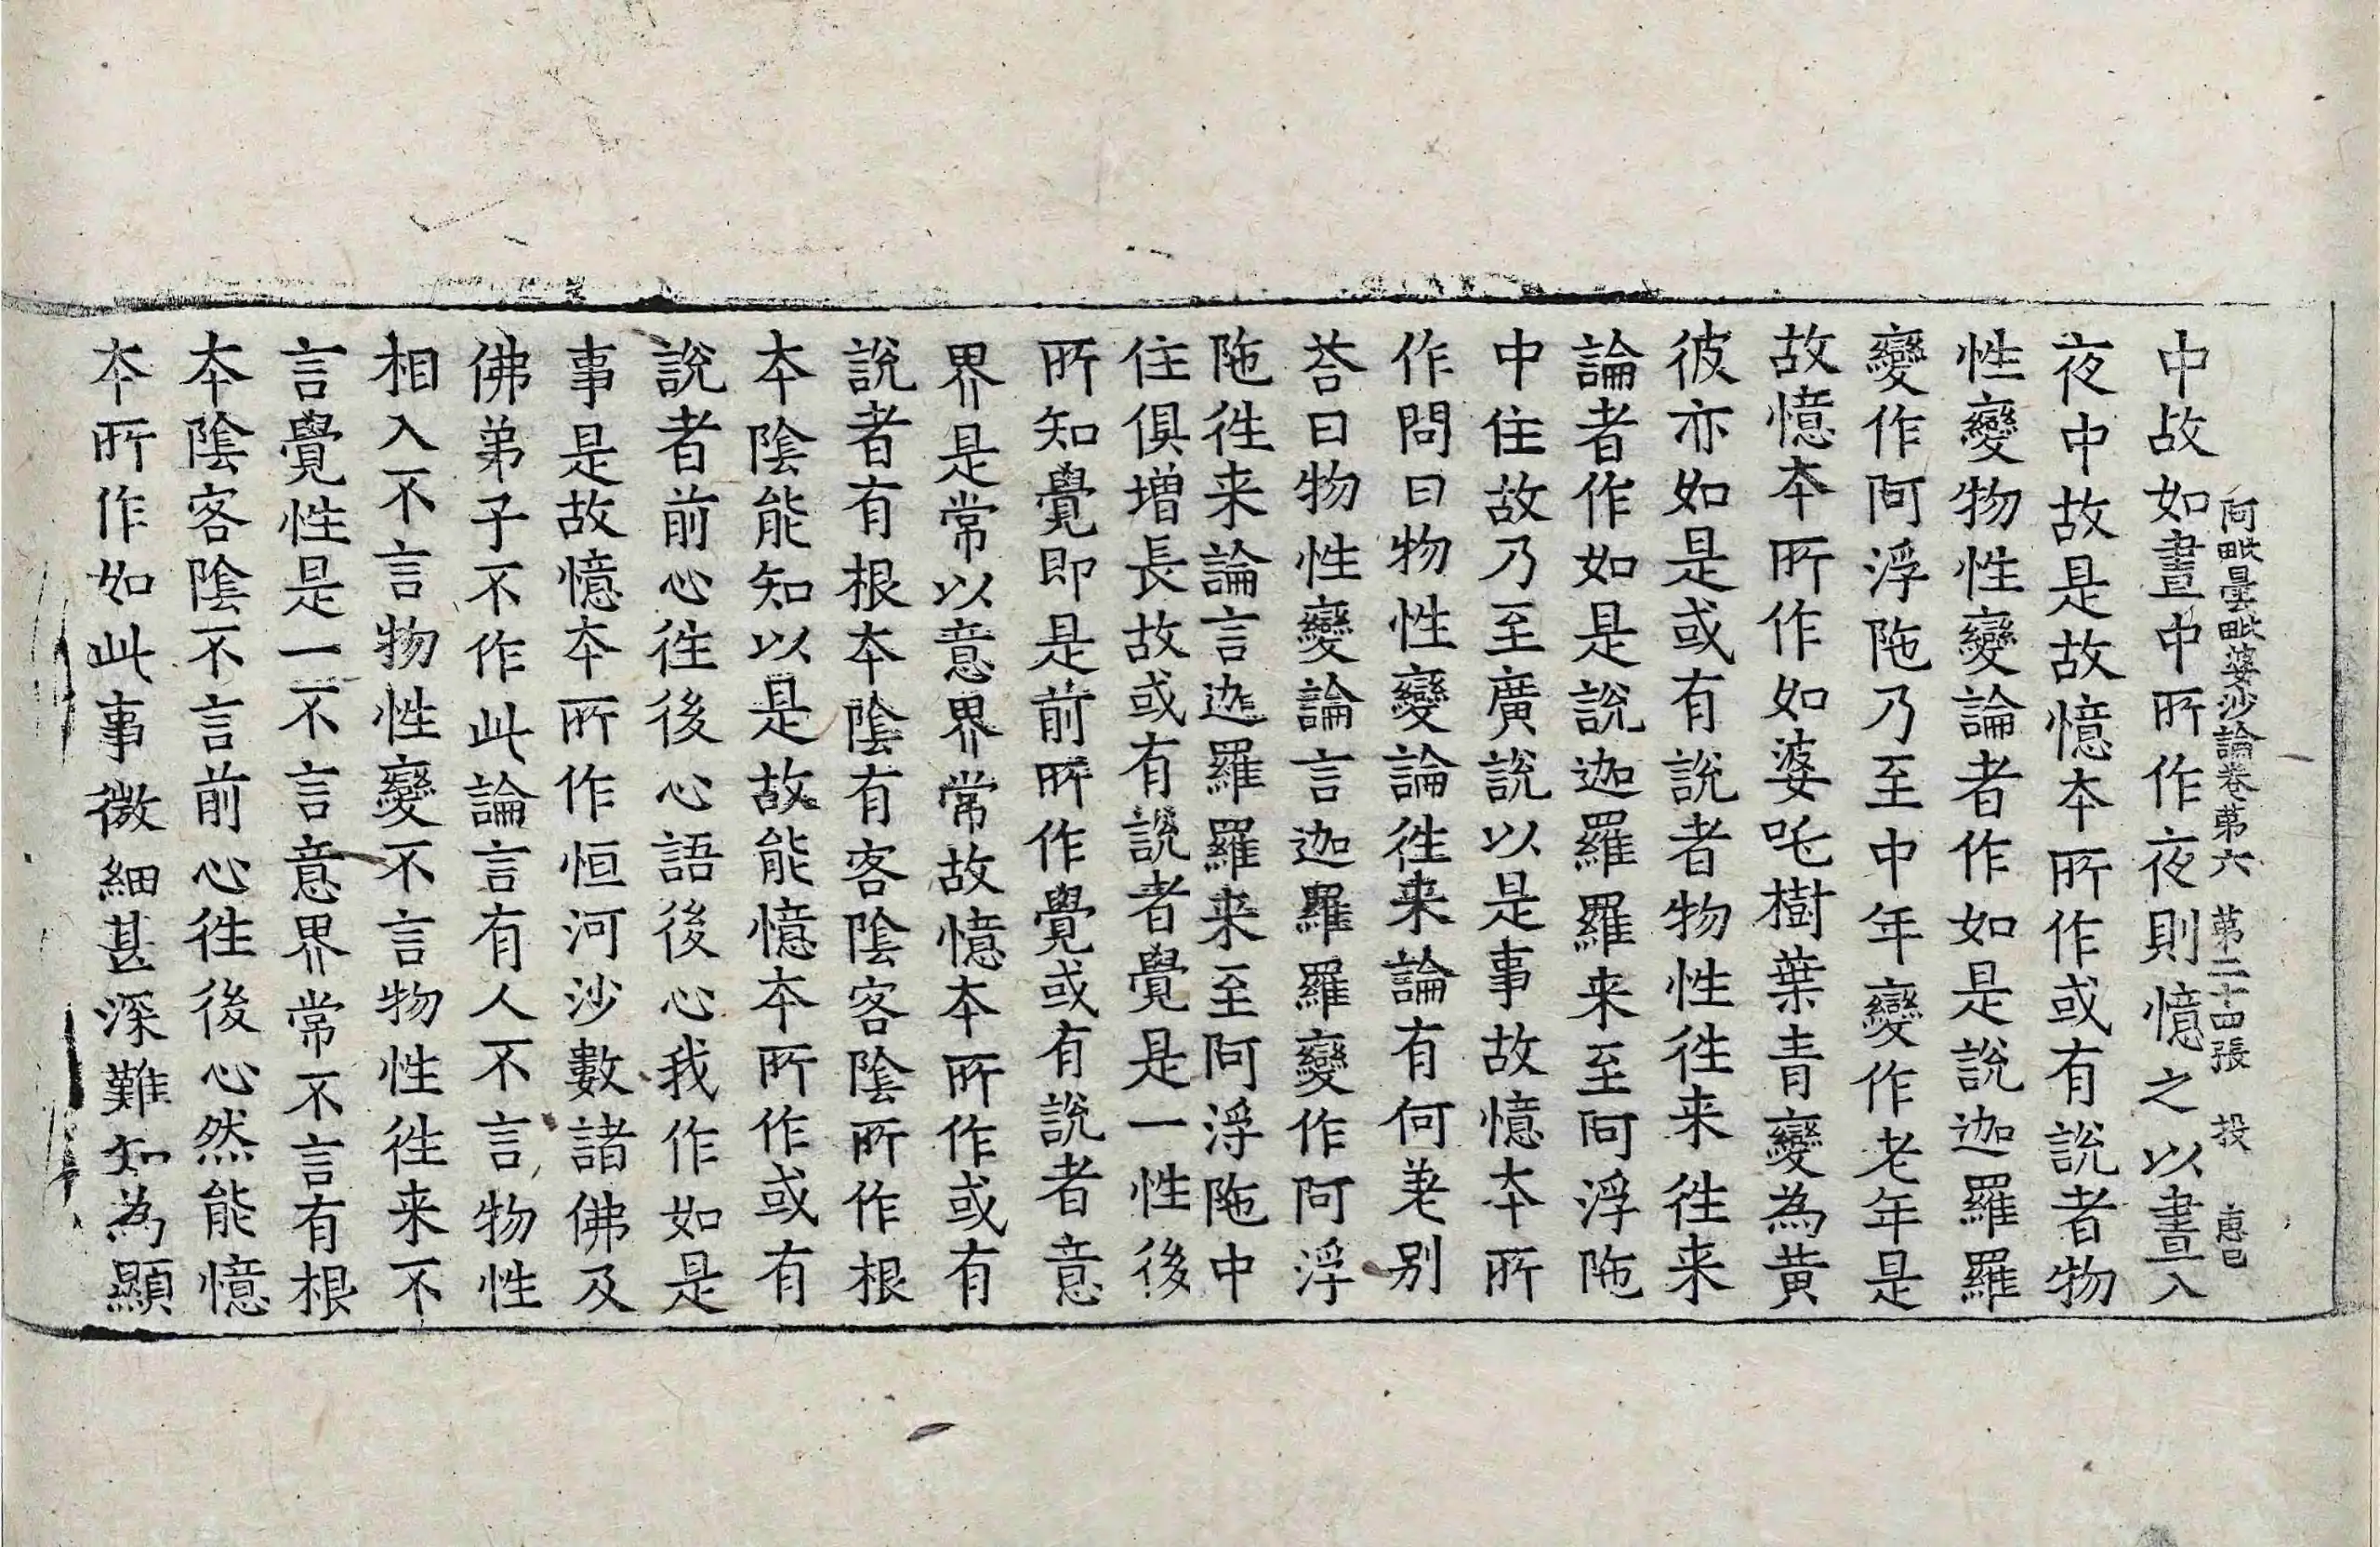 阿毗曇毗婆沙論卷第六　第二十四張　投　惠巳
中故如晝中所作夜則憶之以晝入
夜中故是故憶本所作或有說者物
性變物性變論者作如是說迦羅羅
變作阿浮陁乃至中年變作老年是
故憶本所作如婆吒樹葉青變為黃
彼亦如是或有說者物性往来往来
論者作如是說迦羅羅来至阿浮陁
中住故乃至廣說以是事故憶本所
作問曰物性變論往来論有何差別
荅曰物性變論言迦羅羅變作阿浮
陁往来論言迦羅羅来至阿浮陁中
住俱增長故或有說者覺是一性後
所知覺即是前所作覺或有說者意
界是常以意界常故憶本所作或有
說者有根本陰有客陰客陰所作根
本陰能知以是故能憶本所作或有
說者前心往後心語後心我作如是
事是故憶本所作恒河沙數諸佛及
佛弟子不作此論言有人不言物性
相入不言物性變不言物性往来不
言覺性是一不言意界常不言有根
本陰客陰不言前心往後心然能憶
本所作如此事微細甚深難知為顯